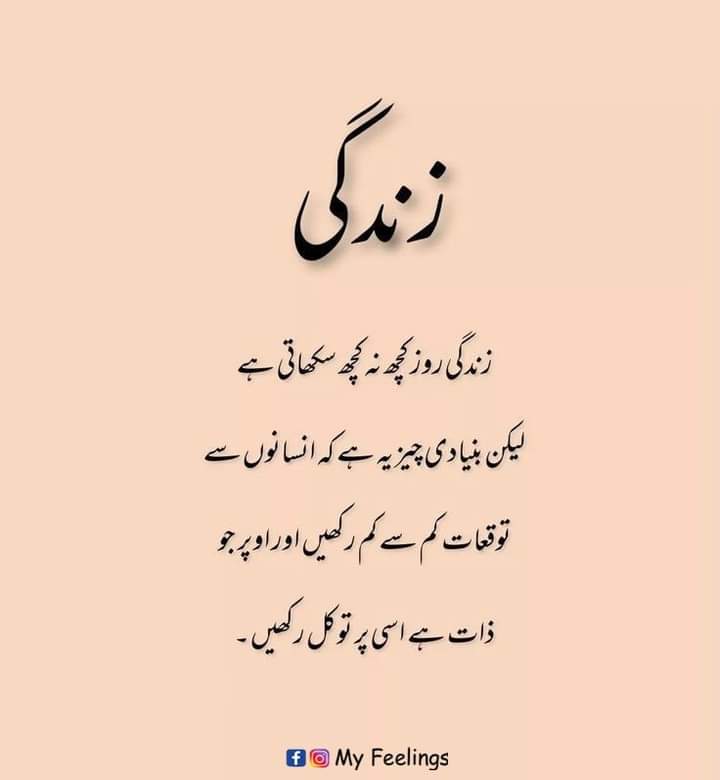 زندگی
زندگی روز کچھ نہ کچھ سکھاتی ہے
لیکن بنیادی چیز یہ ہے کہ انسانوں سے
توقعات کم سے کم رکھیں اور اوپر جو
ذات ہے اسی پر توکل رکھیں ۔
My Feelings